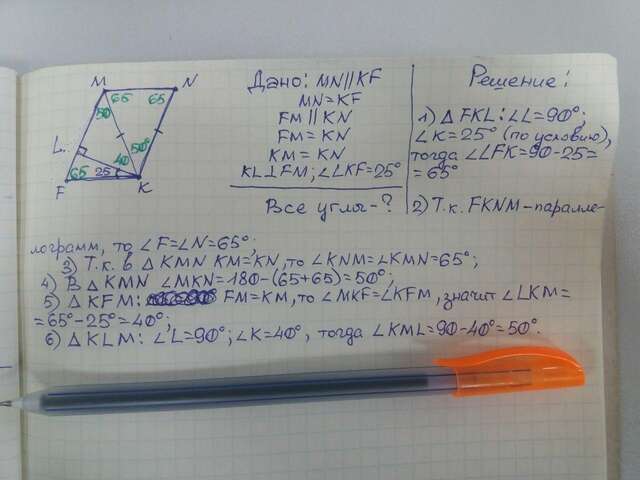 M N
65 65
50
50°
L.
40
65 25
F K
Дано: MN||KF
MN=KF
FM || KN
FM = KN
KM = KN
KL⊥FM; ∠LKF=25°
Все углы-?
Решение:
1) Δ FKL: ∠L=90°;
∠K=25° (по условию),
тогда ∠LFK=90-25=
=65°
2) Т.к. FKNM-паралле-
лограмм, то ∠F=∠N=65°;
3) Т.к. в Δ KMN KM=KN, то ∠KNM=∠KMN=65°;
4) В Δ KMN ∠MKN=180-(65+65)=50°;
5) Δ KFM: FM=KM, то ∠MKF=∠KFM, значит ∠LKM=
=65°-25°=40°;
6) Δ KLM: ∠L=90°; ∠K=40°, тогда ∠KML=90-40°=50°.